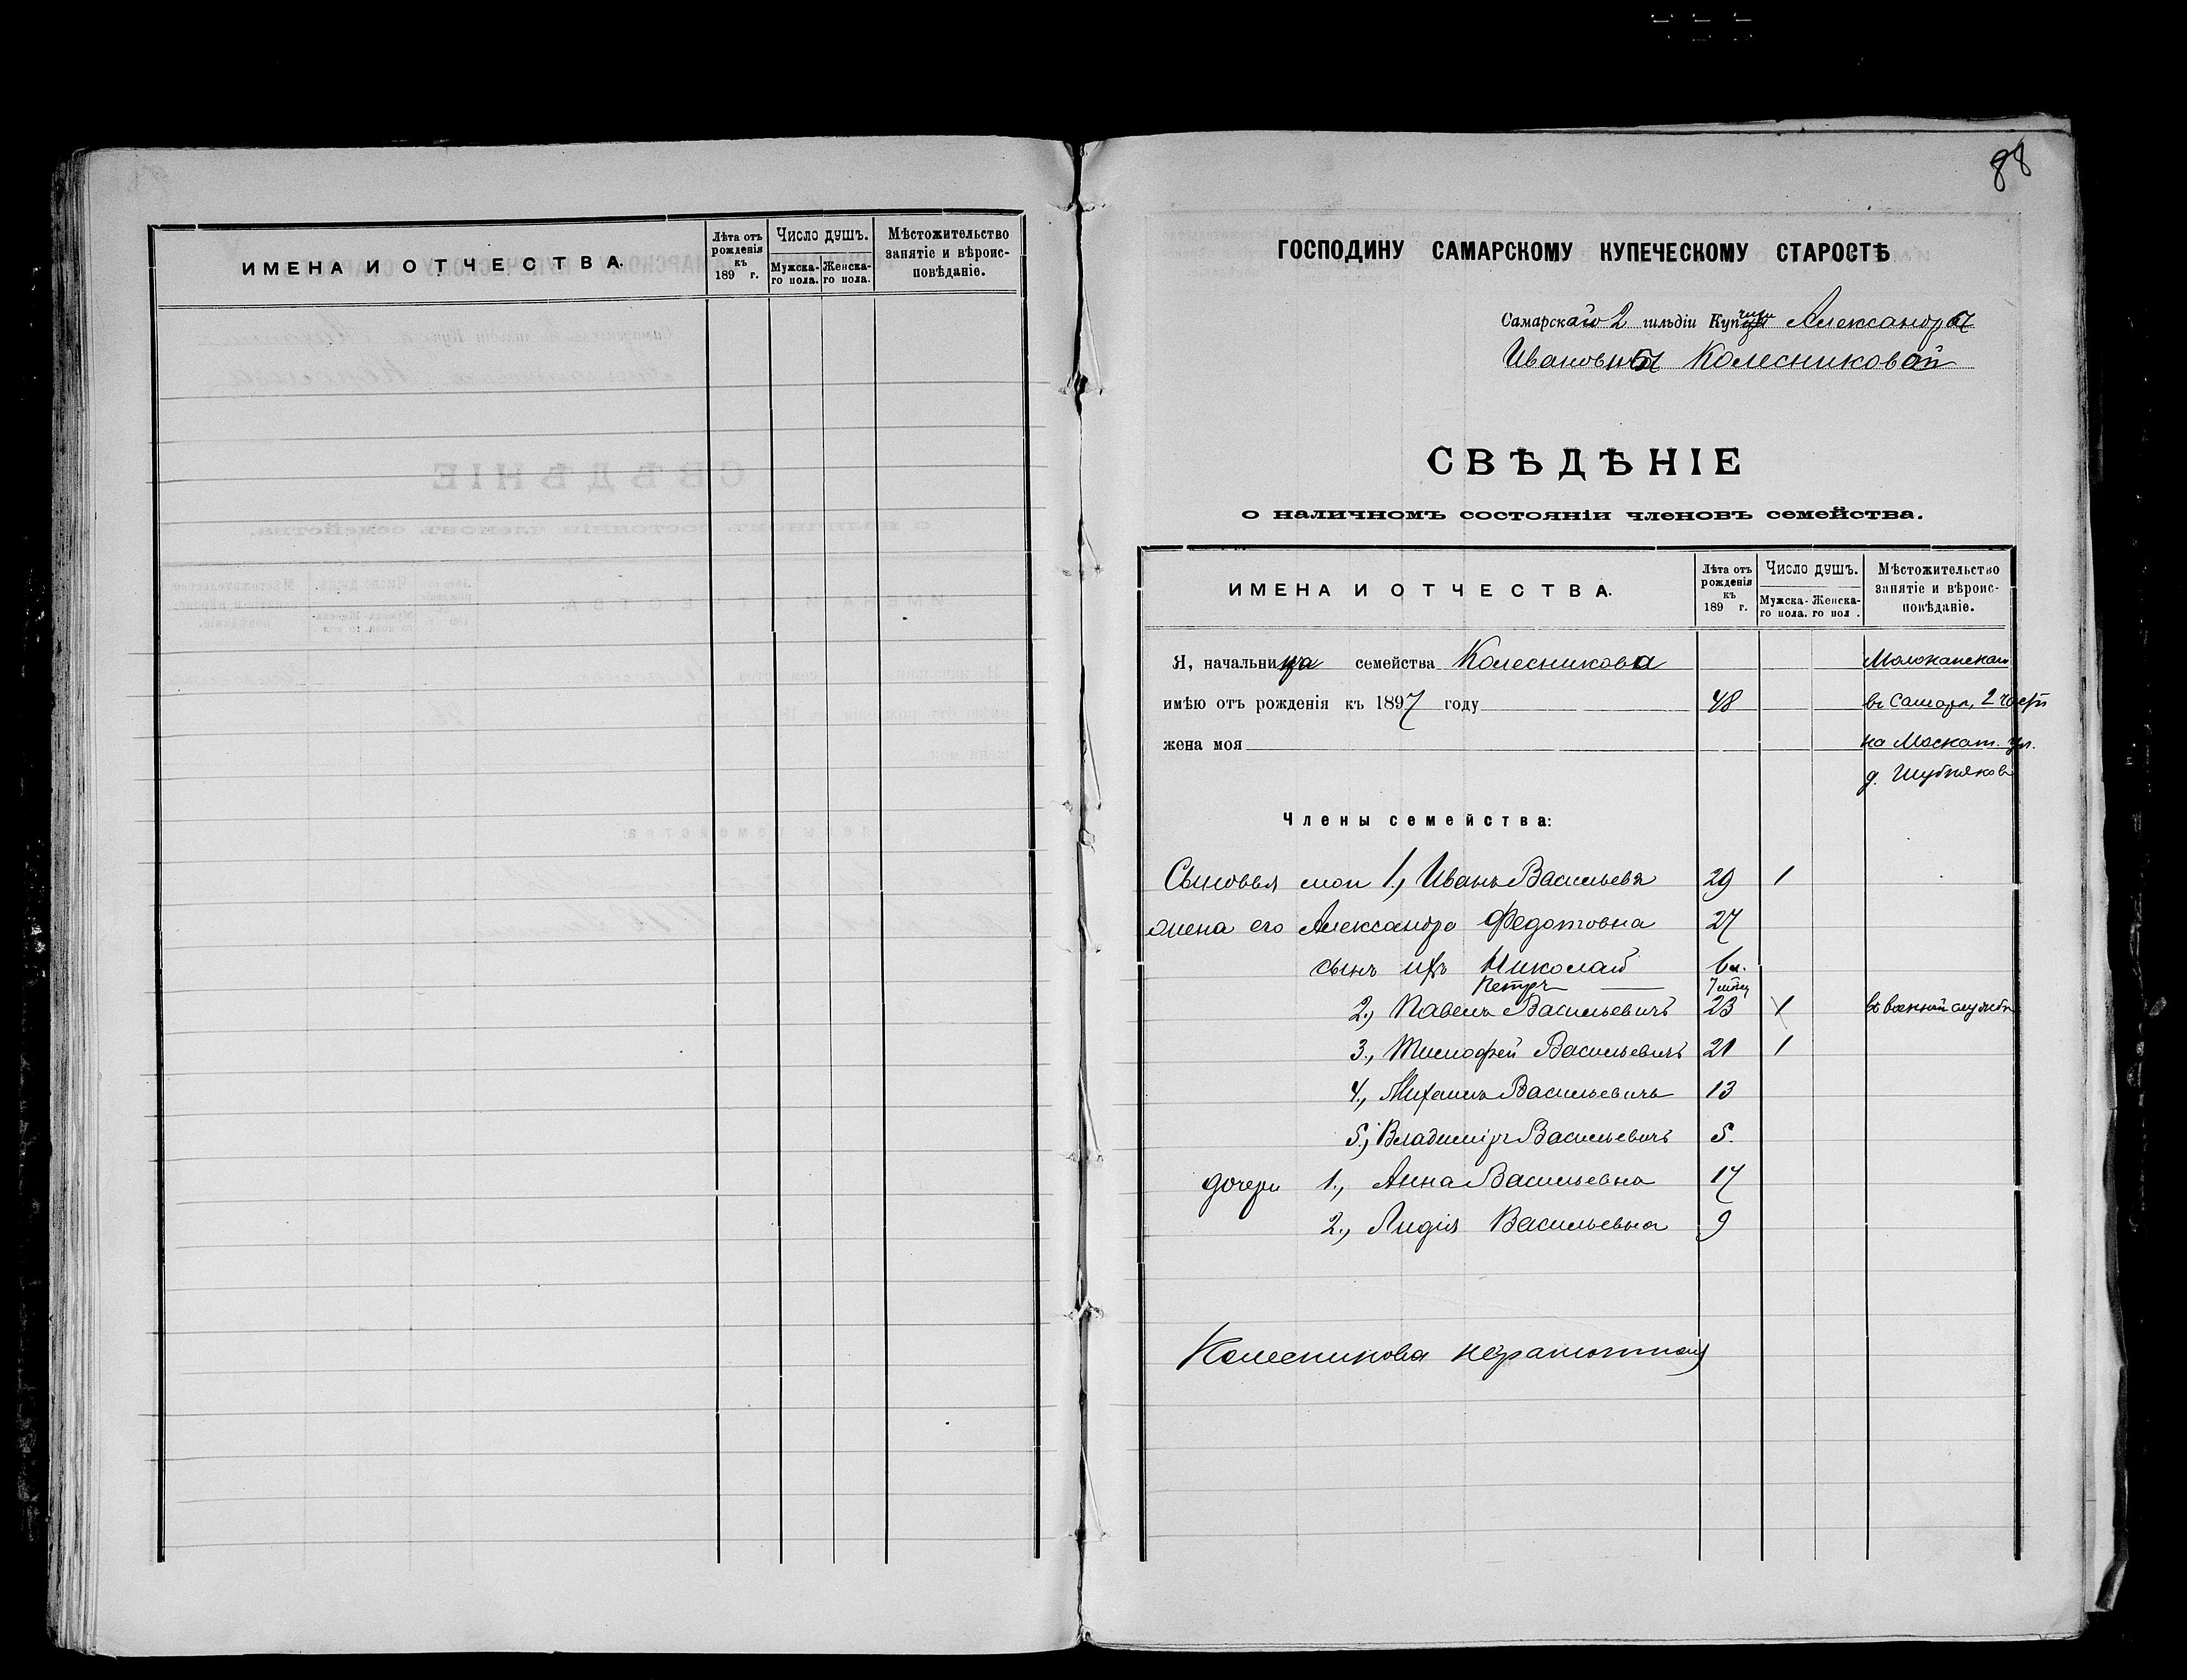 ИМЕНА И ОТЧЕСТВА.
Лѣта отъ рожденія къ 189 г.
Число душъ.
Мужска-го пола.
Женска-го пола.
Мѣстожительство занятіе и вѣроис-повѣданіе.
88
ГОСПОДИНУ САМАРСКОМУ КУПЕЧЕСКОМУ СТАРОСТѢ
Самарскаго 2 гильдіи Купчихи Александры
Ивановны Колесниковой
СВѢДѢНІЕ
о наличномъ состояніи членовъ семейства.
ИМЕНА И ОТЧЕСТВА.
Лѣта отъ рожденія къ 189 г.
Число душъ.
Мужска-го пола.
Женска-го пол .
Мѣстожительство занятіе и вѣроис-повѣданіе.
Я, начальница семейства Колесникова Молоканская
имѣю отъ рожденія къ 1897 году 48 въ Самарѣ, 2 части
жена моя на Москат. ул.
д. Шубняков
Члены семейства:
Сыновья мои 1., Иванъ Васильевъ 29 1
жена его Александра Федотовна 27
сынъ ихъ Николай 6 л.
Петръ
2., Павелъ Васильевичъ 23 1 въ военной службѣ
3., Тимофей Васильевичъ 21 1
4., Михаилъ Васильевичъ 13
5., Владиміръ Васильевичъ 5.
дочери 1., Анна Васильевна 17
2., Лидія Васильевна 9
Колесникова неграмотная